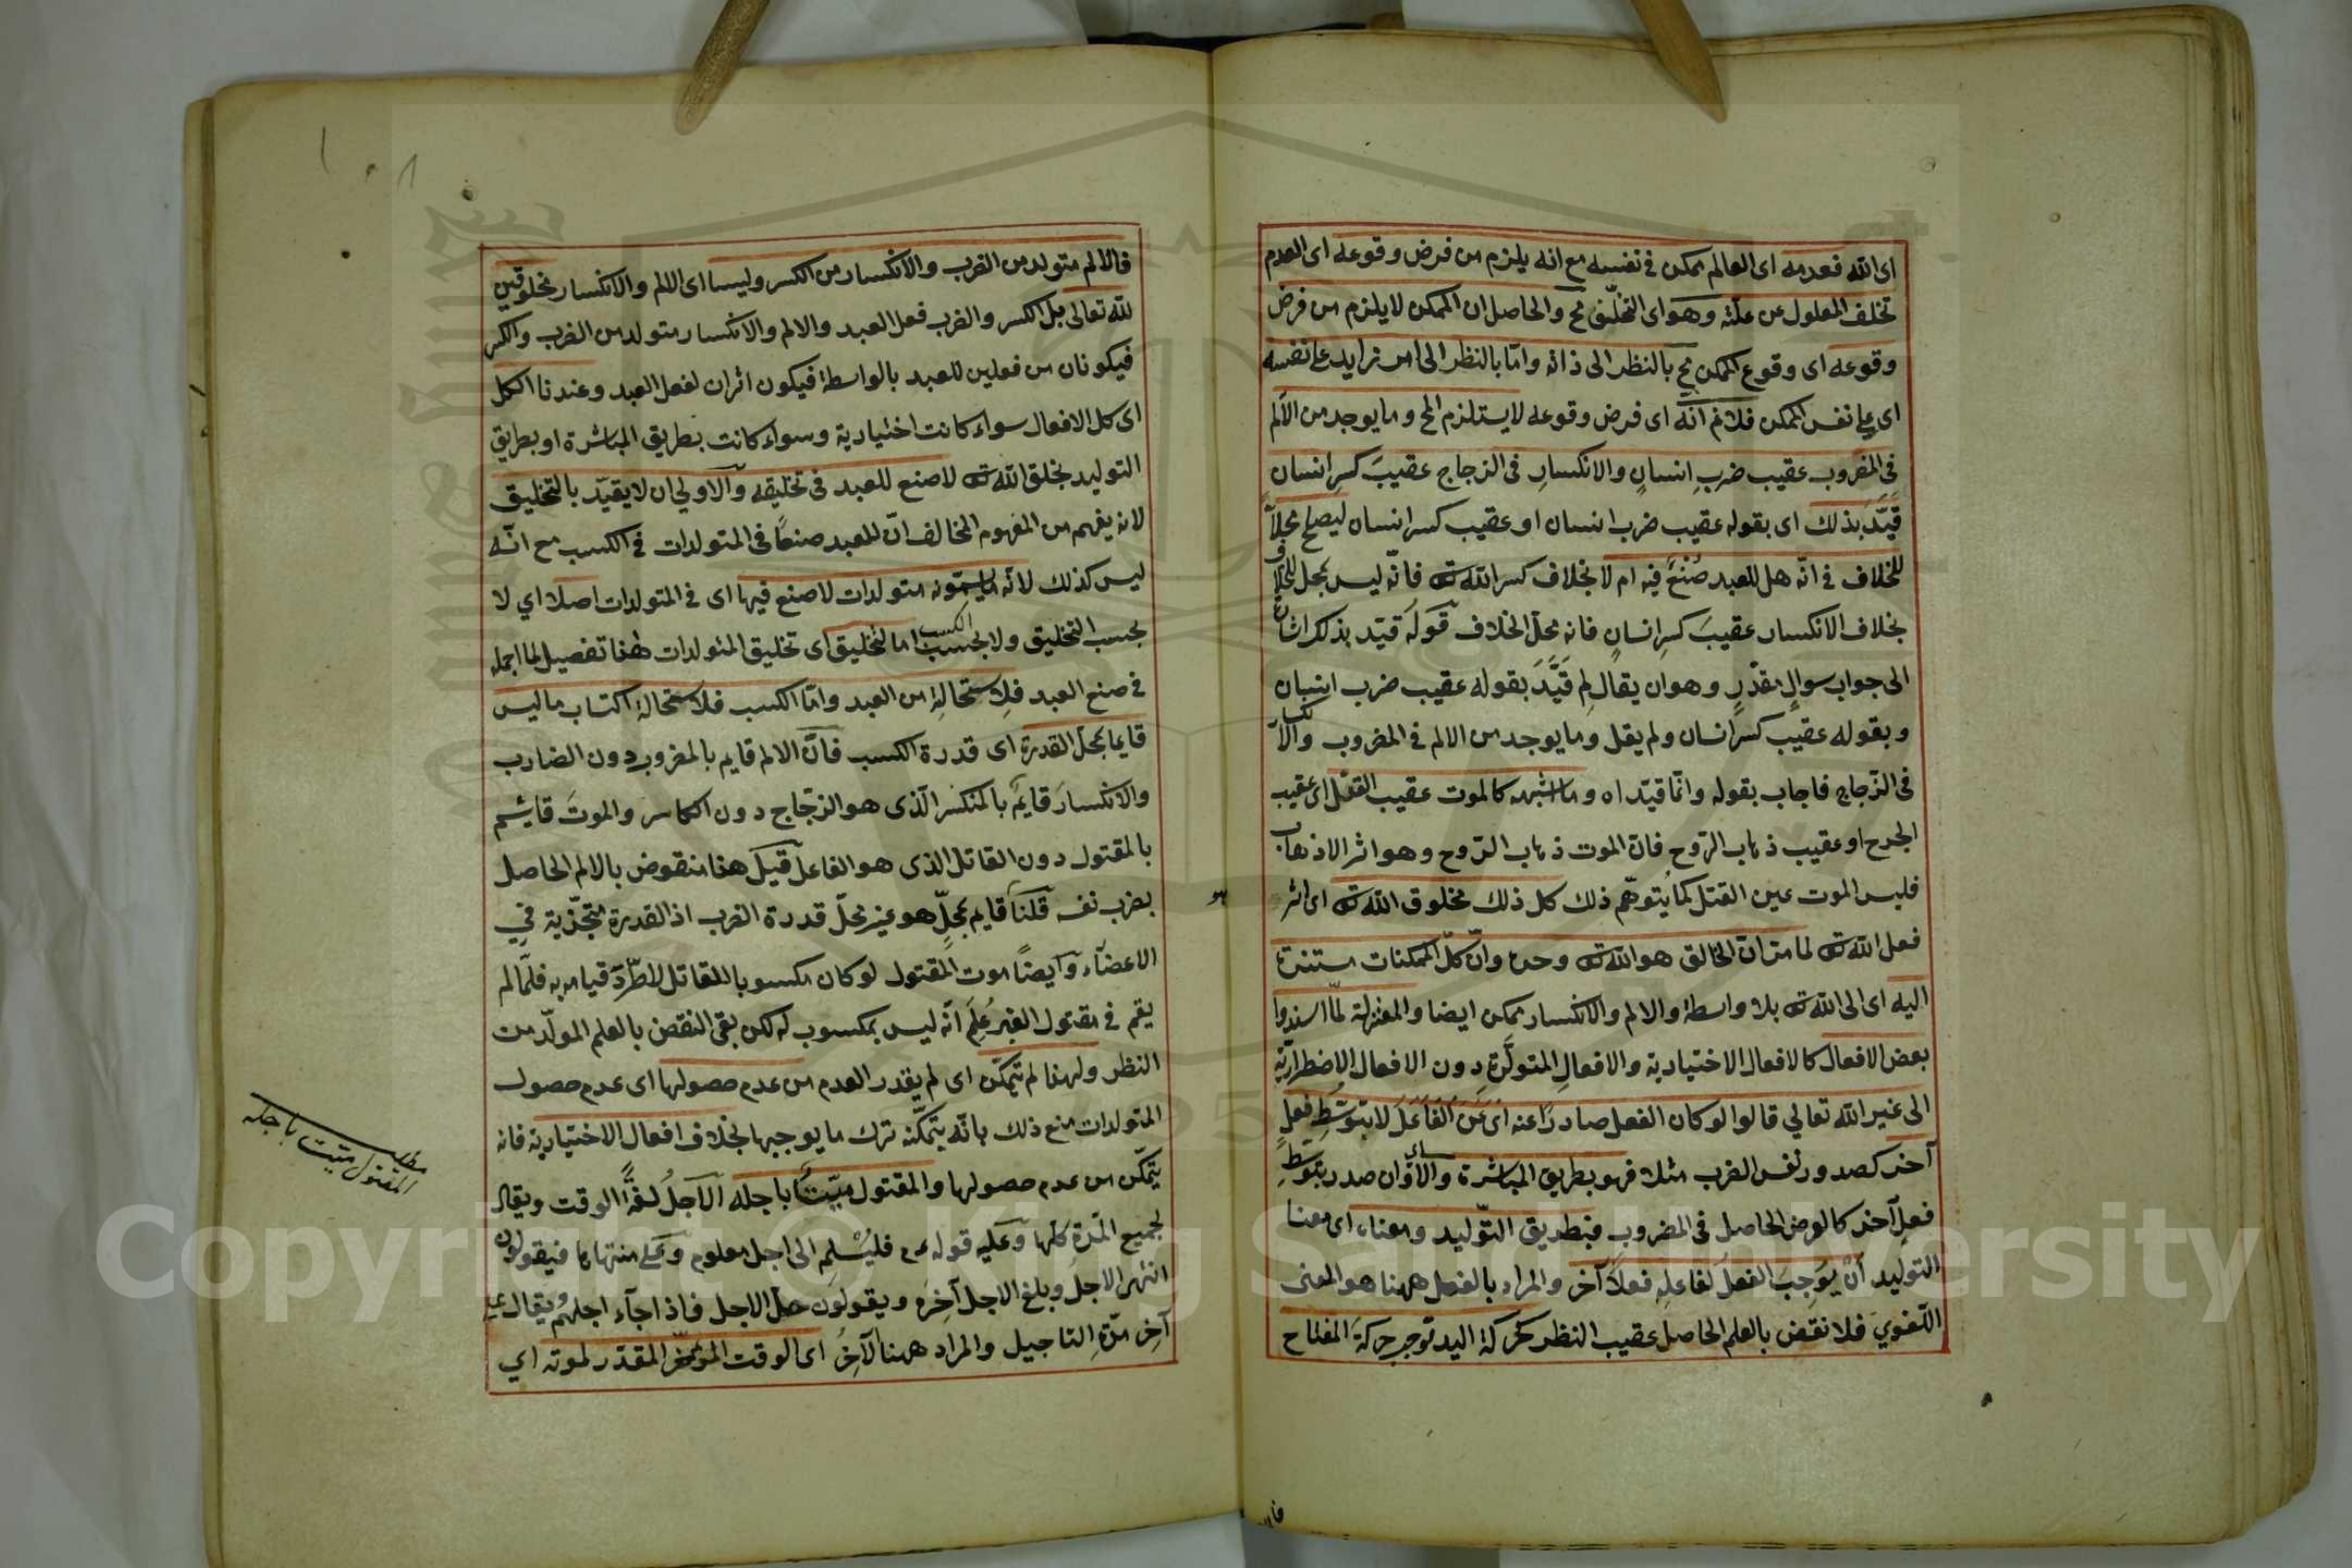 اى الله فعدمه اى العالم ممكن فى نفسه مع انه يلزم من فرض وقوعه اى العدم
تخلف المعلول عن علته وهو اى التخلف مح والحاصل ان الممكن لا يلزم من فرض
وقوعه اى وقوع الممكن مح بالنظر الى ذاته وامّا بالنظر الى امر زايد على نفسه
اى على نفس الممكن فلا نم انّه اى فرض وقوعه لا يستلزم المح وما يوجد من الألم
فى المضروب عقيب ضربِ انسانٍ والانكسارِ فى الزجاج عقيبَ كسرِ انسان
قيّدَ بذلك اى بقوله عقيب ضرب انسان او عقيب كسر انسان ليصلح محلاّ
للخلاف فى انّه هل للعبد صُنعٌ فيه ام لا بخلاف كسر الله ت فانّه ليس بمحل للخلاف
بخلاف الانكسار عقيبَ كسرِ انسانٍ فانه محلّ الخلاف قولَه قيّد بذلك اشارة
الى جواب سوالٍ مقدّرٍ وهو ان يقال لِم قَيَّدَ بقوله عقيب ضرب انسان
وبقوله عقيب كسر انسان ولم يقل وما يوجد من الالم فى المضروب والانكسار
فى الزّجاج فاجاب بقوله وانّما قيّد اه وما اشبهه كالموت عقيب القتل اى عقيب
الجرح او عقيب ذهاب الرّوح فانّ الموت ذهاب الرّوح وهو اثر الاذهاب
فليس الموت عين القتل كما يُتوهّم ذلك كل ذلك مخلوق الله ت اى اثر
فعل الله ت لما مرّ انّ الخالق هو الله ت وحده وانّ كلّ الممكنات مستندة
اليه اى الى الله ت بلا واسطة والالم والانكسار ممكن ايضا والمعتزلة لمّا اسندوا
بعض الافعال كالافعال الاختيارية والافعالِ المتولّدةِ دون الافعال الاضطراريّة
الى غير الله تعالي قالوا لو كان الفعل صادرًا عنه اى عن الفاعل لا بتوسّطِ فعلٍ
آخر كصدور نفس الضرب مثلا فهو بطريق المباشرة والاّ وان صدر بتوسّط
فعلٍ آخر كالوض الحاصل فى المضروب فبطريق التّوليد ومعناه اى معنا
التوليد أنْ يوجبَ الفعلَ لفاعلِه فعلاً آخر والمراد بالفعل ههنا هو المعنى
اللّغوى فلا نقض بالعلم الحاصل عقيب النظر كحركة اليد توجب حركة المفتاح
فالا
فالالم متولد من الضرب والانكسار من الكسر وليسا اى الالم والانكسار مخلوقين
لله تعالى بل الكسر والضرب فعل العبد والالم والانكسار متولد من الضرب والكسر
فيكونان من فعلين للعبد بالواسطة فيكون اثران لفعل العبد وعندنا الكل
اى كل الافعال سواء كانت اختيارية وسواء كانت بطريق المباشرة او بطريق
التوليد بخلق الله ت لا صنع للعبد فى تخليقه والاولى ان لا يقيّد بالتخليق
لانه يفهم من المفهوم المخالف انّ للعبد صنعًا فى المتولدات فى الكسب مع انّه
ليس كذلك لانّه ما يسمّونه متولدات لا صنع فيها اى فى المتولدات اصلا اي لا
بحسب التخليق ولا بحسب الكسب اما التخليق اى تخليق المتولدات هذا تفصيل لما اجمله
فى صنع العبد فلاستحالته من العبد وامّا الكسب فلاستحالة اكتساب ما ليس
قايما بمحل القدرة اى قدرة الكسب فانّ الالم قايم بالمضروب دون الضارب
والانكسارَ قايمٌ بالمنكسر الّذى هو الزجّاج دون الكاسر والموتَ قائم
بالمقتول دون القاتل الذى هو الفاعل قيلَ هذا منقوض بالالم الحاصل
بضرب نفسه قلنا قايم بمحلٍّ هو غير محلّ قدرة الضرب اذ القدرة متجزّية فى
الاعضآء وآيضًا موت المقتول لو كان مكسوبا للقاتل لاطّردَ قيامه به فلمّا لم
يقم فى مقتول الغير عُلِمَ انّه ليس بمكسوب له لكن بقى النقض بالعلم المولّد من
النظر ولهذا لم يتمكّن اى لم يقدر العبد من عدم حصولها اى عدم حصول
المتولدات منع ذلك بانّه يتمكّنه ترك ما يوجبها بخلاف افعال الاختيارية فانه
يتمكّن من عدم حصولها والمقتول ميّتٌ باجله الآجلُ لغةً الوقت ويقال
لجميع المدّة كلّها وعليه قوله عم فليُسْلِم الى اجل معلوم وعلى منتهاها فيقولون
انتهى الاجلُ وبلغ الاجل آخِرَه ويقولون حلّ الاجل فاذا جآء اجلهم ويقال على
آخِر مدّةِ التاجيل والمراد ههنا الآخِرُ اى الوقت المؤخّر المقدّر لموته اي
مطلب المقتول ميت باجله
١٠٨
Copyright © King Saud University